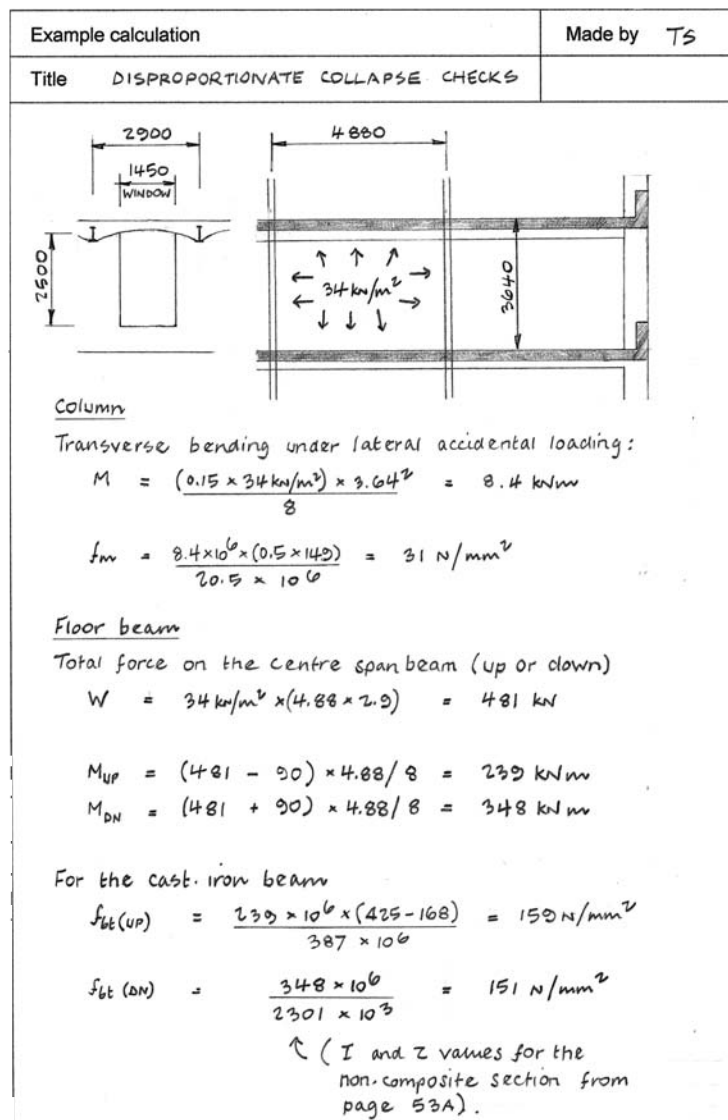 Example calculation
Made by TS
Title DISPROPORTIONATE COLLAPSE CHECKS
2900
4880
1450
WINDOW
2500
34 kN/m²
3640
Column
Transverse bending under lateral accidental loading:
M = (0.15 × 34 kN/m²) × 3.64² / 8 = 8.4 kNm
fm = 8.4×10⁶ × (0.5 × 149) / 20.5 × 10⁶ = 31 N/mm²
Floor beam
Total force on the centre span beam (up or down)
W = 34 kN/m² × (4.88 × 2.9) = 481 kN
M_UP = (481 - 90) × 4.88/8 = 239 kNm
M_DN = (481 + 90) × 4.88/8 = 348 kNm
For the cast. iron beam
fbt(UP) = 239 × 10⁶ × (425-168) / 387 × 10⁶ = 159 N/mm²
fbt (DN) = 348 × 10⁶ / 2301 × 10³ = 151 N/mm²
↑ ( I and Z values for the
non. composite section from
page 53A).